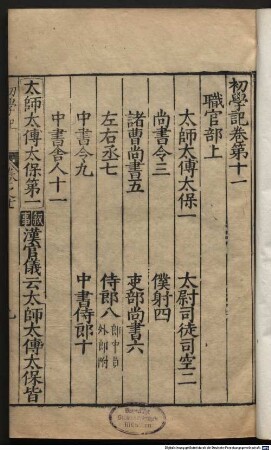 初學記卷第十一
職官部上
太師太傅太保一 太尉司徒司空二
尚書令三 僕射四
諸曹尚書五 吏部尚書六
左右丞七 侍郎八郎中員外郎附
中書令九 中書侍郎十
中書舍人十一
太師太傅太保第一 敘事 漢官儀云太師太傅太保皆
初學記